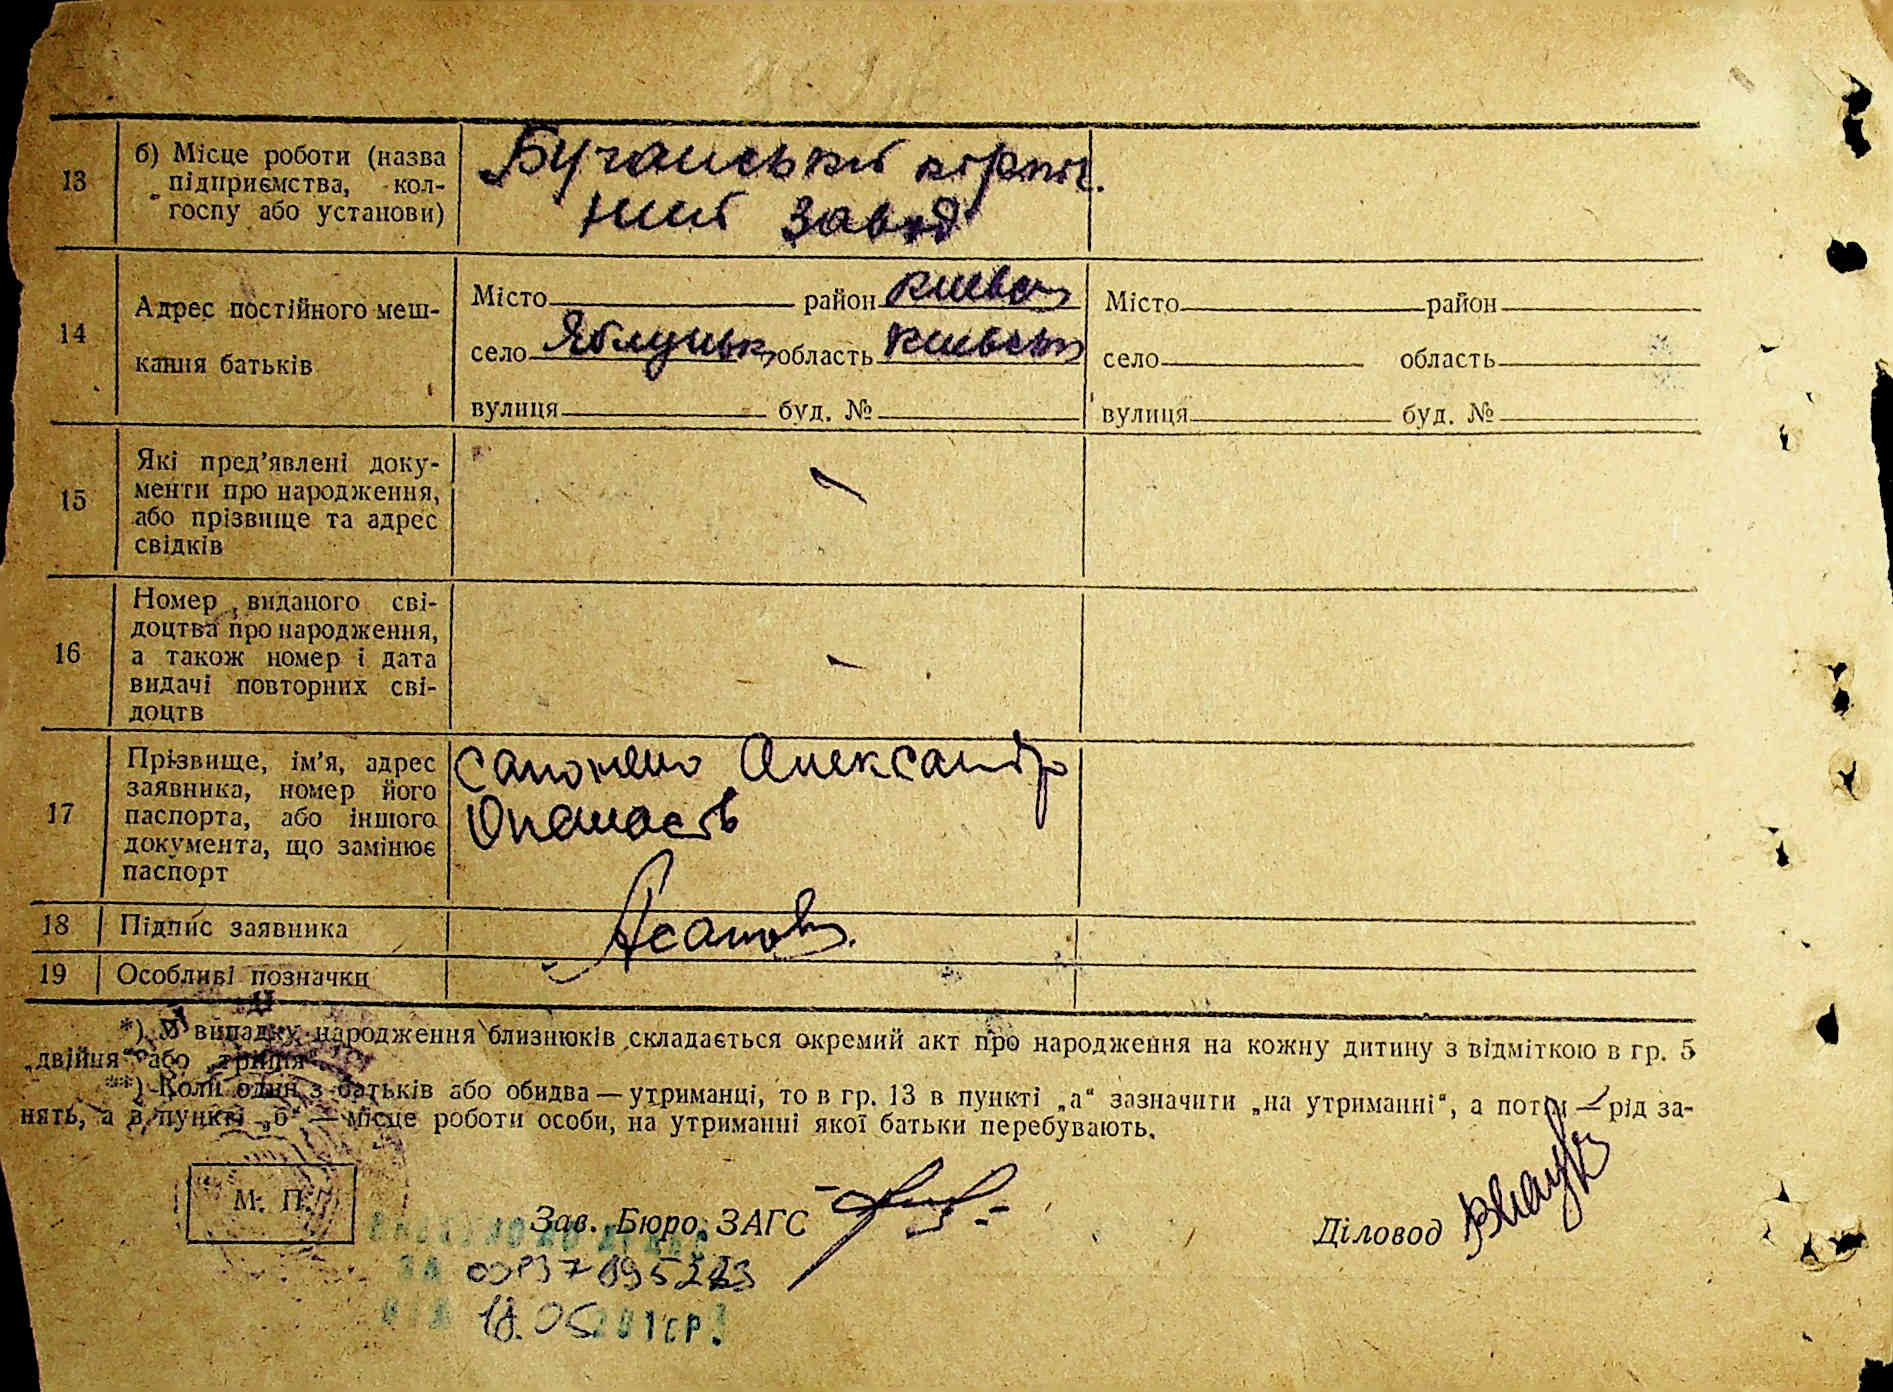 13
б) Місце роботи (назва
підприємства, кол-
госпу або установи)
Бучанський кірпіч.
ний завод
14
Адрес постійного меш-
кання батьків
Місто район Києвськ
село Яблунька, область Києвськ
вулиця буд. №
Місто район
село область
вулиця буд. №
15
Які пред'явлені доку-
менти про народження,
або прізвище та адрес
свідків
16
Номер виданого сві-
доцтва про народження,
а також номер і дата
видачі повторних сві-
доцтв
17
Прізвище, ім'я, адрес
заявника, номер його
паспорта, або іншого
документа, що замінює
паспорт
Александр
18 Підпис заявника
19 Особливі позначки
*) У випадку народження близнюків складається окремий акт про народження на кожну дитину з відміткою в гр. 5
„двійня“ або „трійня“
**) Коли один з батьків або обидва — утриманці, то в гр. 13 в пункті „а“ зазначити „на утриманні“, а потім — рід за-
нять, а в пункті „б“ — місце роботи особи, на утриманні якої батьки перебувають.
М. П.
Зав. Бюро ЗАГС
Діловод